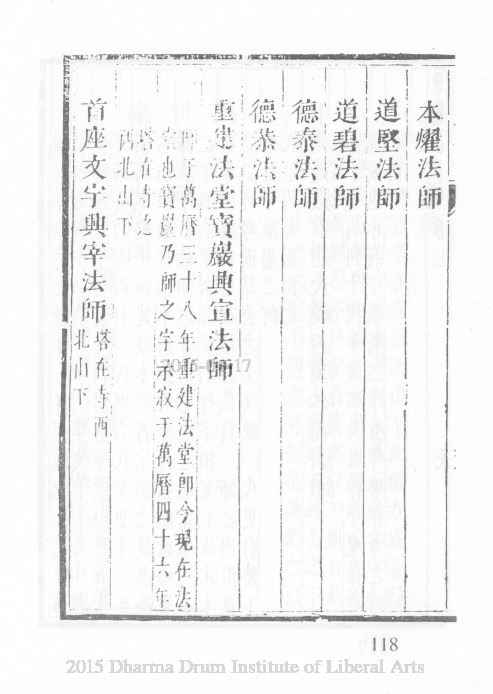 本燿法師
道堅法師
道碧法師
德泰法師
德恭法師
重建法堂寶嚴興宣法師
師于萬曆三十八年重建法堂即今現在法
堂也寶嚴乃師之字示寂于萬曆四十六年
塔在寺之
西北山下
首座文宇興宰法師
塔在寺西
北山下
118
2015 Dharma Drum Institute of Liberal Arts